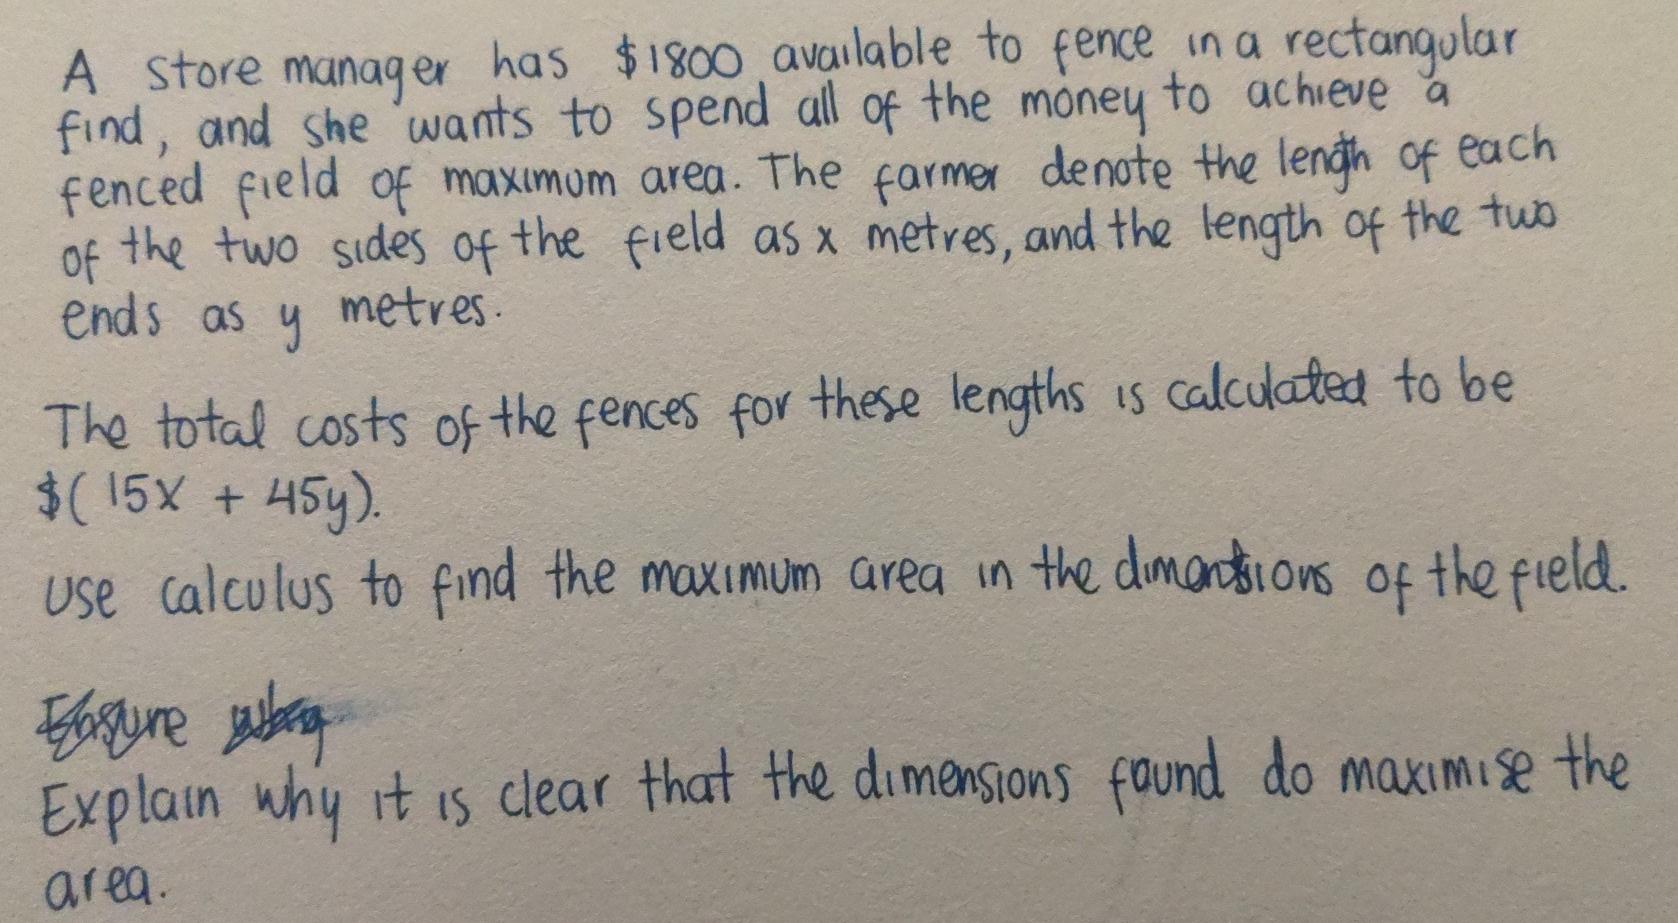 A store manager has $1800 available to fence in a rectangular
find, and she wants to spend all of the money to achieve a
fenced field of maximum area. The farmer denote the length of each
of the two sides of the field as x metres, and the length of the two
ends as y metres.
The total costs of the fences for these lengths is calculated to be
$(15x + 45y).
Use calculus to find the maximum area in the dimentsions of the field.
Explain why it is clear that the dimensions found do maximise the
area.